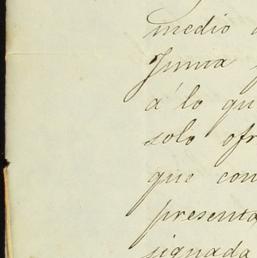 medio
Junta
á lo qu
solo ofr
que con
presenta
signada